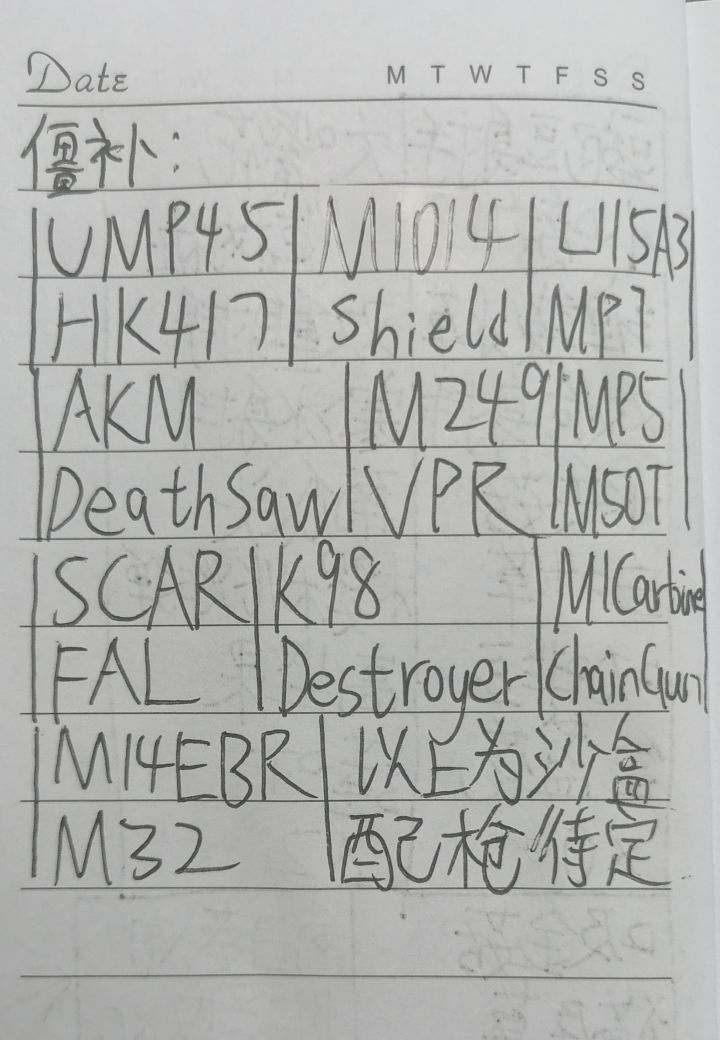 Date M T W T F S S
僵补:
UMP45 M1014 L115A3
HK417 Shield MP7
AKM M249 MP5
DeathSaw VPR M50T
SCAR K98 M1Carbine
FAL Destroyer ChainGun
M14EBR 以上为沙盒
M32 配枪待定